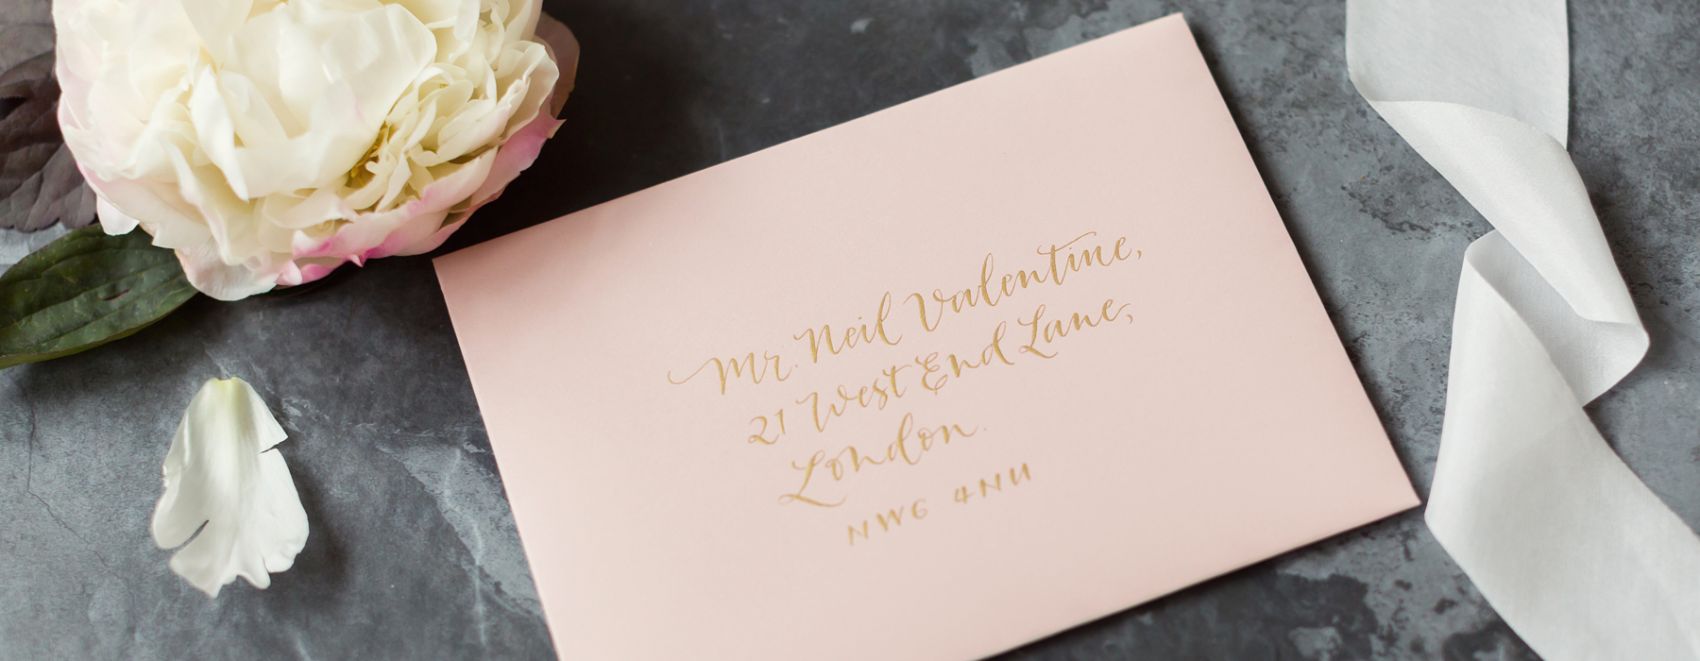 Mr. Neil Valentine,
21 West End Lane,
London.
NW6 4NU